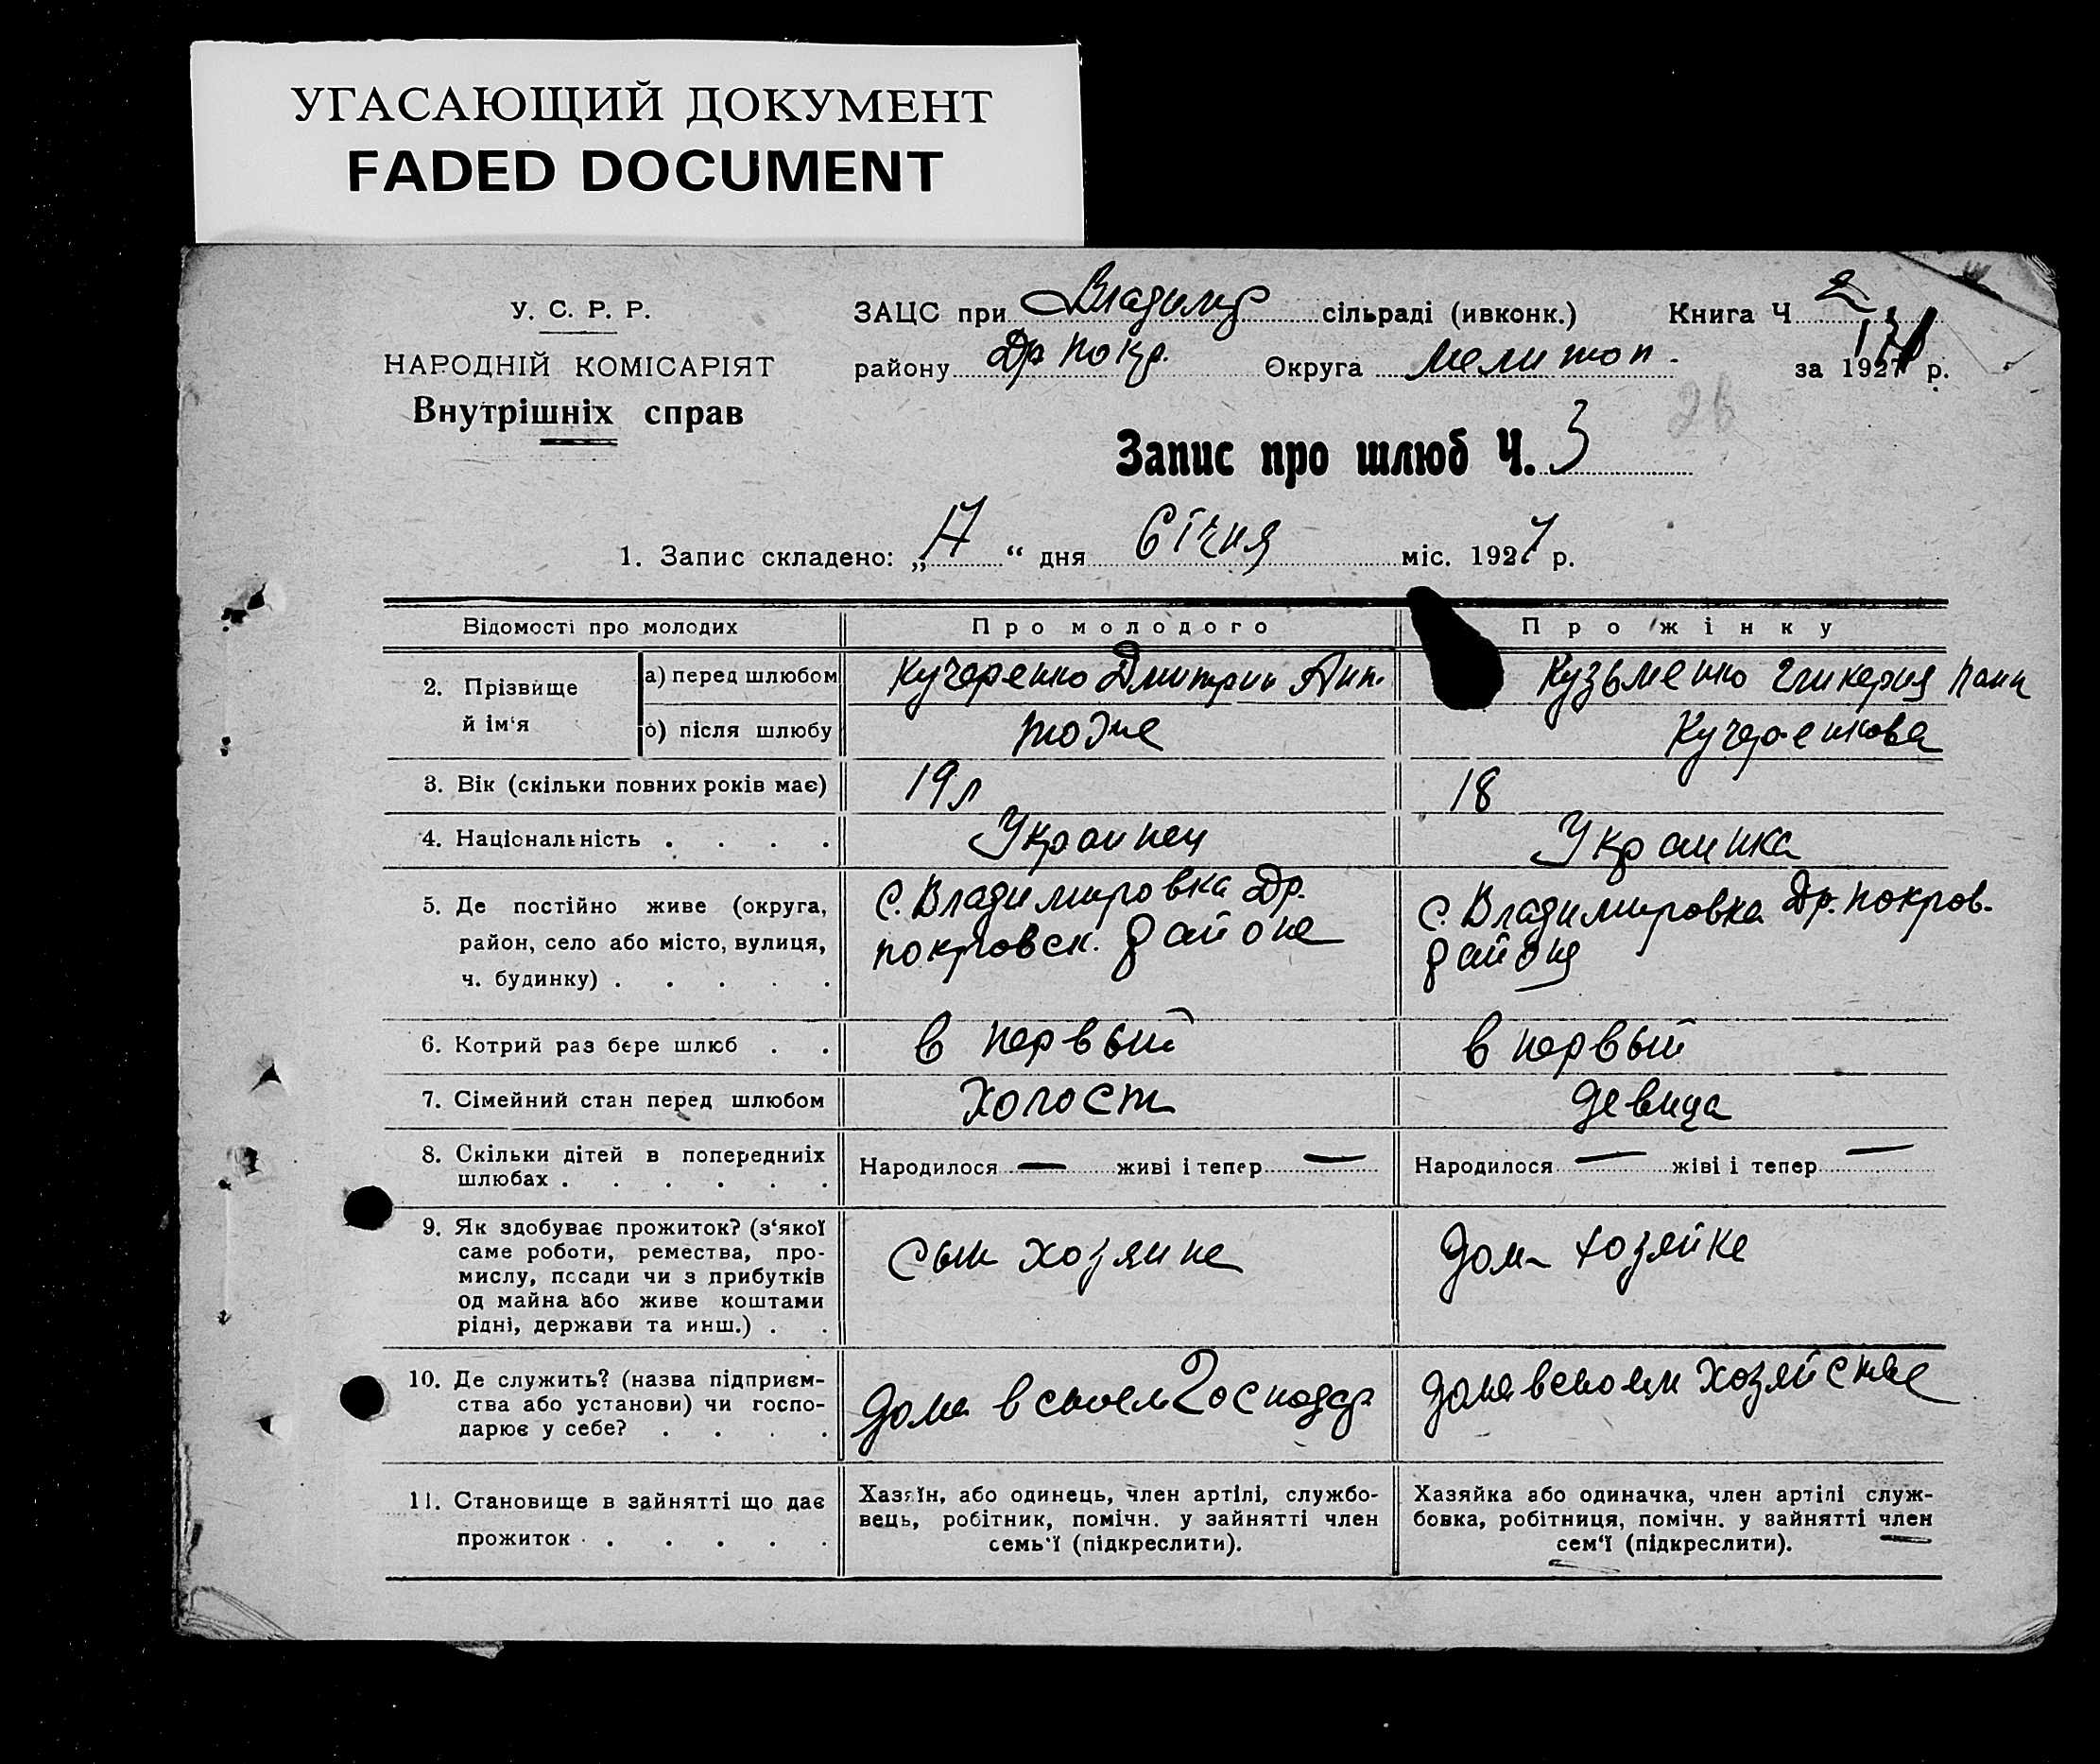 УГАСАЮЩИЙ ДОКУМЕНТ
FADED DOCUMENT
У. С. Р. Р.
НАРОДНІЙ КОМІСАРІЯТ
Внутрішніх справ
ЗАЦС при Владимир сільраді (ивконк.) Книга Ч 2
району Др покр. Округа Мелитоп. за 1927 р.
26
Запис про шлюб Ч. 3
1. Запис складено: „ “ дня Січня міс. 1927 р.
Відомості про молодих
Про молодого
Про жінку
2. Прізвище й ім‘я
а) перед шлюбом
Кучеренко Дмитрий Ант.
Кузьменко Гликерия Пант
б) після шлюбу
тоже
Кучеренкова
3. Вік (скільки повних років має)
19 л
18
4. Національність . . . .
Украинец
Украинка
5. Де постійно живе (округа,
район, село або місто, вулиця,
ч. будинку) . . . . .
с. Владимировка Др.
покровск. района
с. Владимировка Др. покров.
района
6. Котрий раз бере шлюб . .
в первый
в первый
7. Сімейний стан перед шлюбом
холост
девица
8. Скільки дітей в попередниіх
шлюбах . . . . . .
Народилося — живі і тепер —
Народилося — жіві і тепер —
9. Як здобуває прожиток? (з‘якої
саме роботи, ремества, про-
мислу, посади чи з прибутків
од майна або живе коштами
рідні, держави та инш.) . .
сын хозяина
дом хозяйка
10. Де служить? (назва підприєм-
ства або установи) чи госпо-
дарює у себе? . . . .
дома в своем господар
дома в своем хозяйстве
11. Становище в зайнятті що дає
прожиток . . . . . .
Хазяїн, або одинець, член артілі, службо-
вець, робітник, помічн. у зайнятті член
семь‘ї (підкреслити).
Хазяйка або одиначка, член артілі служ-
бовка, робітниця, помічн. у зайнятті член
сем‘ї (підкреслити).